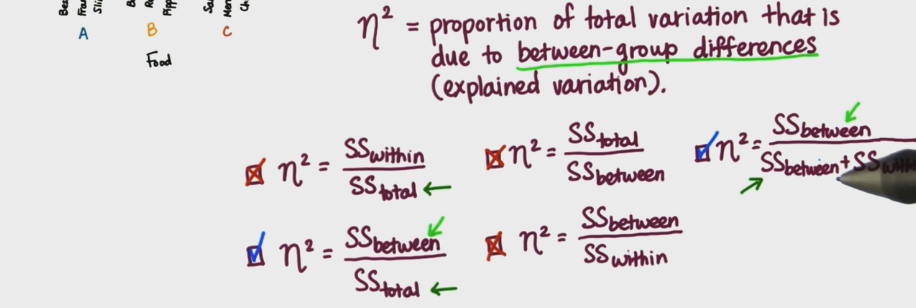 A B C
Food
η² = proportion of total variation that is
due to between-group differences
(explained variation).
η² = SSwithin / SStotal
η² = SStotal / SSbetween
η² = SSbetween / SSbetween + SS
η² = SSbetween / SStotal
η² = SSbetween / SSwithin